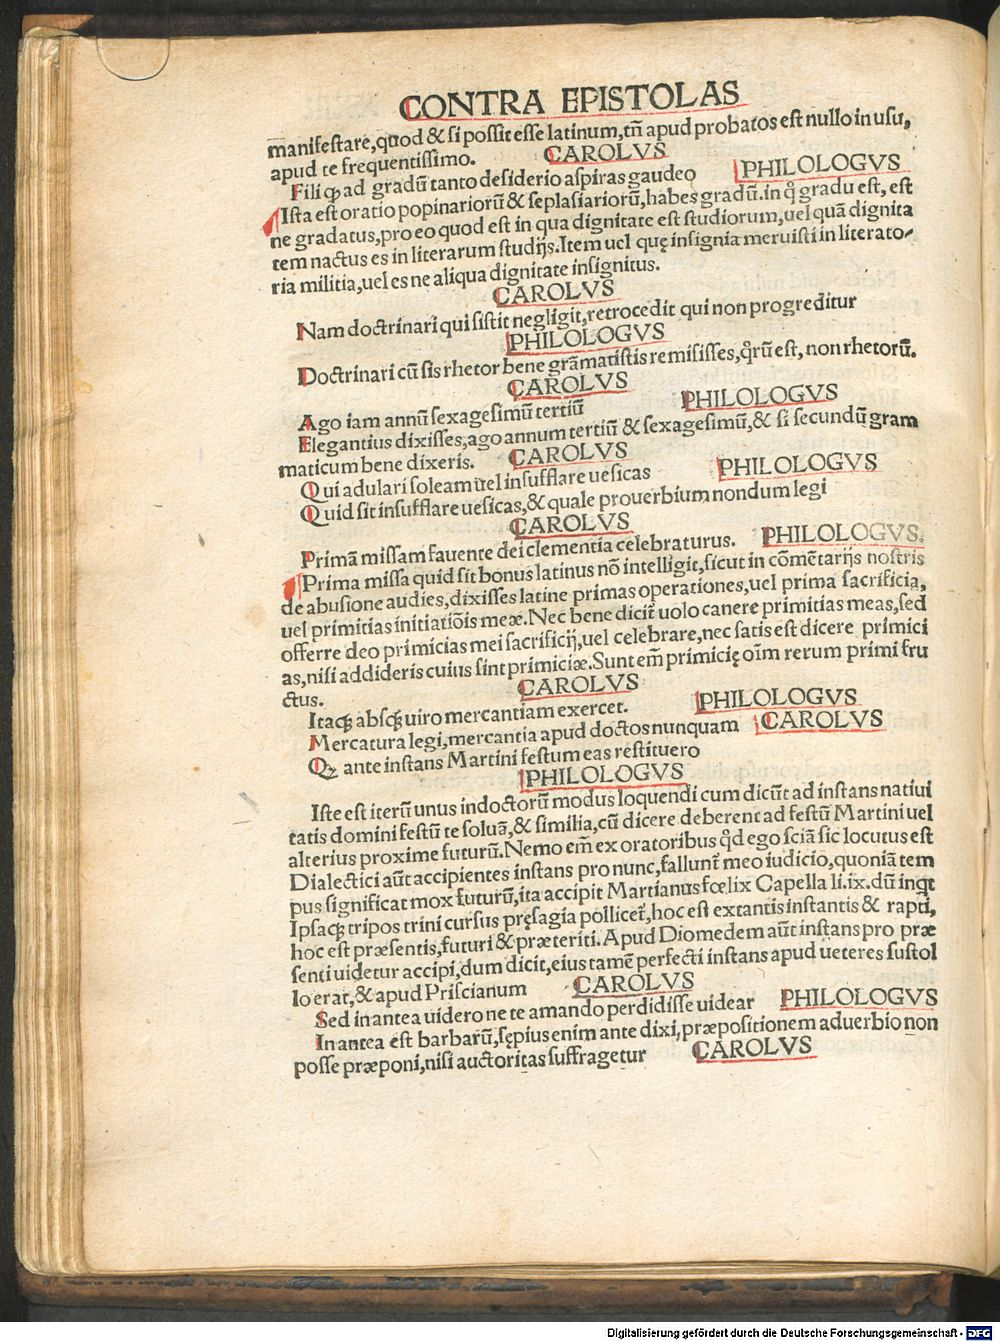 CONTRA EPISTOLAS
manifestare,quod & si possit esse latinum,tñ apud probatos est nullo in usu,
apud te frequentissimo. CAROLVS
Fili ꝙ ad gradũ tanto desiderio aspiras gaudeo PHILOLOGVS
Ista est oratio popinariorũ & seplasiariorũ,habes gradũ.in q̃ gradu est, est
ne gradatus,pro eo quod est in qua dignitate est studiorum,uel quã dignita
tem nactus es in literarum studijs.Item uel quę insignia meruisti in literato⸗
ria militia,uel es ne aliqua dignitate insignitus.
CAROLVS
Nam doctrinari qui sistit negligit,retrocedit qui non progreditur
PHILOLOGVS
Doctrinari cũ sis rhetor bene grãmatistis remisisses,q̃rũ est, non rhetorũ.
CAROLVS
Ago iam annũ sexagesimũ tertiũ PHILOLOGVS
Elegantius dixisses,ago annum tertiũ & sexagesimũ,& si secundũ gram
maticum bene dixeris. CAROLVS
Qui adulari soleam ũel insufflare uesicas PHILOLOGVS
Quid sit insufflare uesicas,& quale prouerbium nondum legi
CAROLVS
Primã missam fauente dei clementia celebraturus. PHILOLOGVS.
Prima missa quid sit bonus latinus nõ intelligit,sicut in cõmẽtarijs nostris
de abusione audies,dixisses latine primas operationes,uel prima sacrificia,
uel primitias initiatiõis meæ.Nec bene dicit̃ uolo canere primitias meas,sed
offerre deo primicias mei sacrificij,uel celebrare,nec satis est dicere primici
as,nisi addideris cuius sint primiciæ.Sunt em̃ primicię oĩm rerum primi fru
ctus. CAROLVS
Itaqꝫ absqꝫ uiro mercantiam exercet. PHILOLOGVS
Mercatura legi,mercantia apud doctos nunquam CAROLVS
Qꝫ ante instans Martini festum eas restituero
PHILOLOGVS
Iste est iterũ unus indoctorũ modus loquendi cum dicũt ad instans natiui
tatis domini festũ te soluã,& similia,cũ dicere deberent ad festũ Martini uel
alterius proxime futurũ.Nemo em̃ ex oratoribus q̃d ego sciã sic locutus est
Dialectici aũt accipientes instans pro nunc,fallunt̃ meo iudicio,quoniã tem
pus significat mox futurũ,ita accipit Martianus fœlix Capella li.ix.dũ inq̃t
Ipsaqꝫ tripos trini cursus pręsagia pollicet̃,hoc est extantis instantis & rapti,
hoc est præsentis,futuri & præteriti.Apud Diomedem aũt instans pro præ
senti uidetur accipi,dum dicit,eius tamẽ perfecti instans apud ueteres sustol
lo erat,& apud Priscianum CAROLVS
Sed in antea uidero ne te amando perdidisse uidear PHILOLOGVS
In antea est barbarũ,sępius enim ante dixi,præpositionem aduerbio non
posse præponi,nisi auctoritas suffragetur CAROLVS
Digitalisierung gefördert durch die Deutsche Forschungsgemeinschaft - DFG